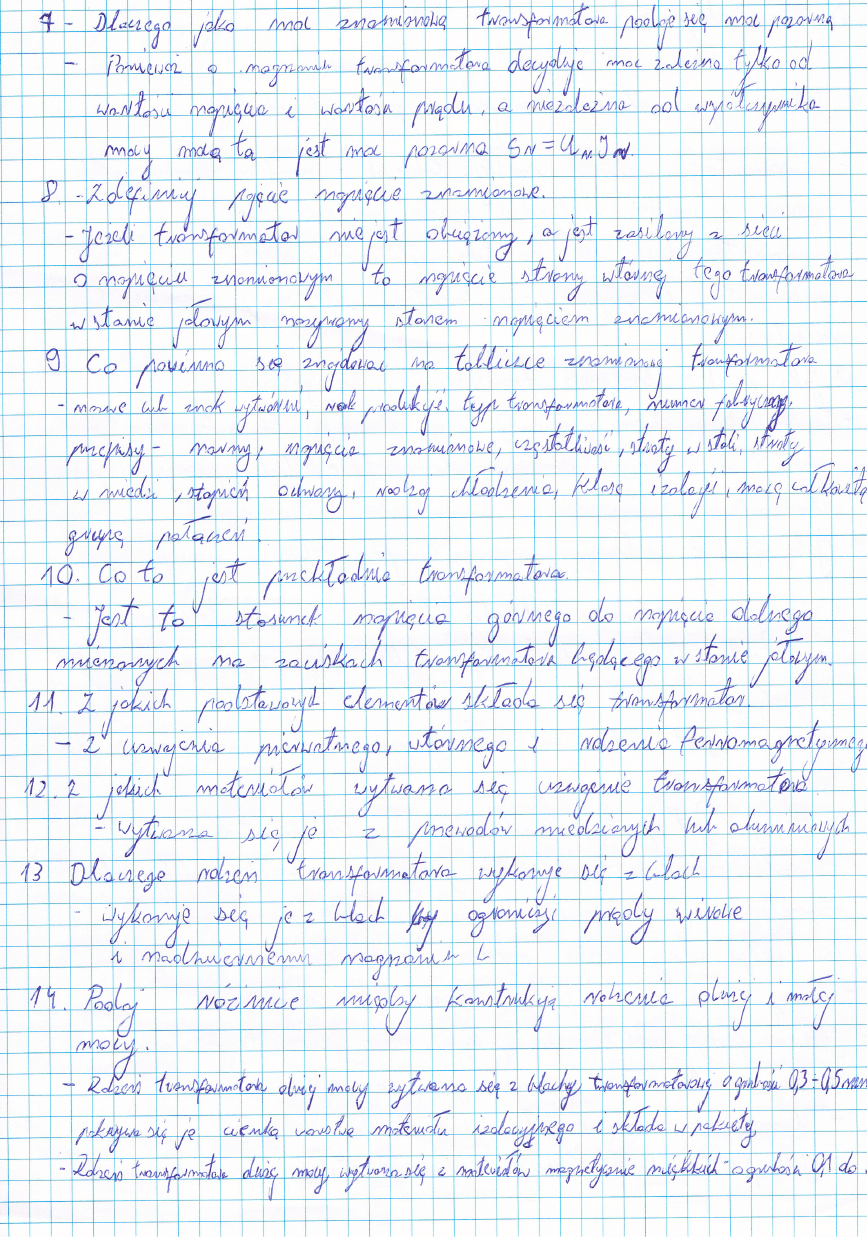 7 - Dlaczego jako moc znamionową transformatora podaje się moc pozorną
- Ponieważ o nagrzaniu transformatora decyduje moc zależna tylko od
wartości napięcia i wartości prądu, a niezależna od współczynnika
mocy mocą tą jest moc pozorna SN = UN IN
8. - Zdefiniuj pojęcie napięcie znamionowe.
- Jeżeli transformator nie jest obciążony, a jest zasilany z sieci
o napięciu znamionowym to napięcie strony wtórnej tego transformatora
w stanie jałowym nazywamy stanem napięciem znamionowym.
9 Co powinno się znajdować na tabliczce znamionowej transformatora
- nazwę lub znak wytwórni, rok produkcji, typ transformatora, numer fabryczny,
przepisy - normy, napięcia znamionowe, częstotliwość, straty w stali, straty
w miedzi, stopień ochrony, rodzaj chłodzenia, klasę izolacji, masę całkowitą
grupę połączeń.
10. Co to jest przekładnia transformatora.
- Jest to stosunek napięcia górnego do napięcia dolnego
mierzonych na zaciskach transformatora będącego w stanie jałowym.
11. Z jakich podstawowych elementów składa się transformator.
- Z uzwojenia pierwotnego, wtórnego i rdzenia ferromagnetycznego
12. Z jakich materiałów wytwarza się uzwojenie transformatora
- wytwarza się je z przewodów miedzianych lub aluminiowych
13 Dlaczego rdzeń transformatora wykonuje się z blach
- wykonuje się je z blach by ograniczyć prądy wirowe
i nadmiernemu nagrzaniu
14. Podaj różnice między konstrukcją rdzenia dużej i małej
mocy.
- Rdzeń transformatora dużej mocy wytwarza się z blachy transformatorowej o grubości 0,3 - 0,5 mm
pokrywa się je cienką warstwą materiału izolacyjnego i składa w pakiety
- Rdzeń transformatora dużej mocy wytwarza się z materiałów magnetycznie miękkich o grubości 0,1 do